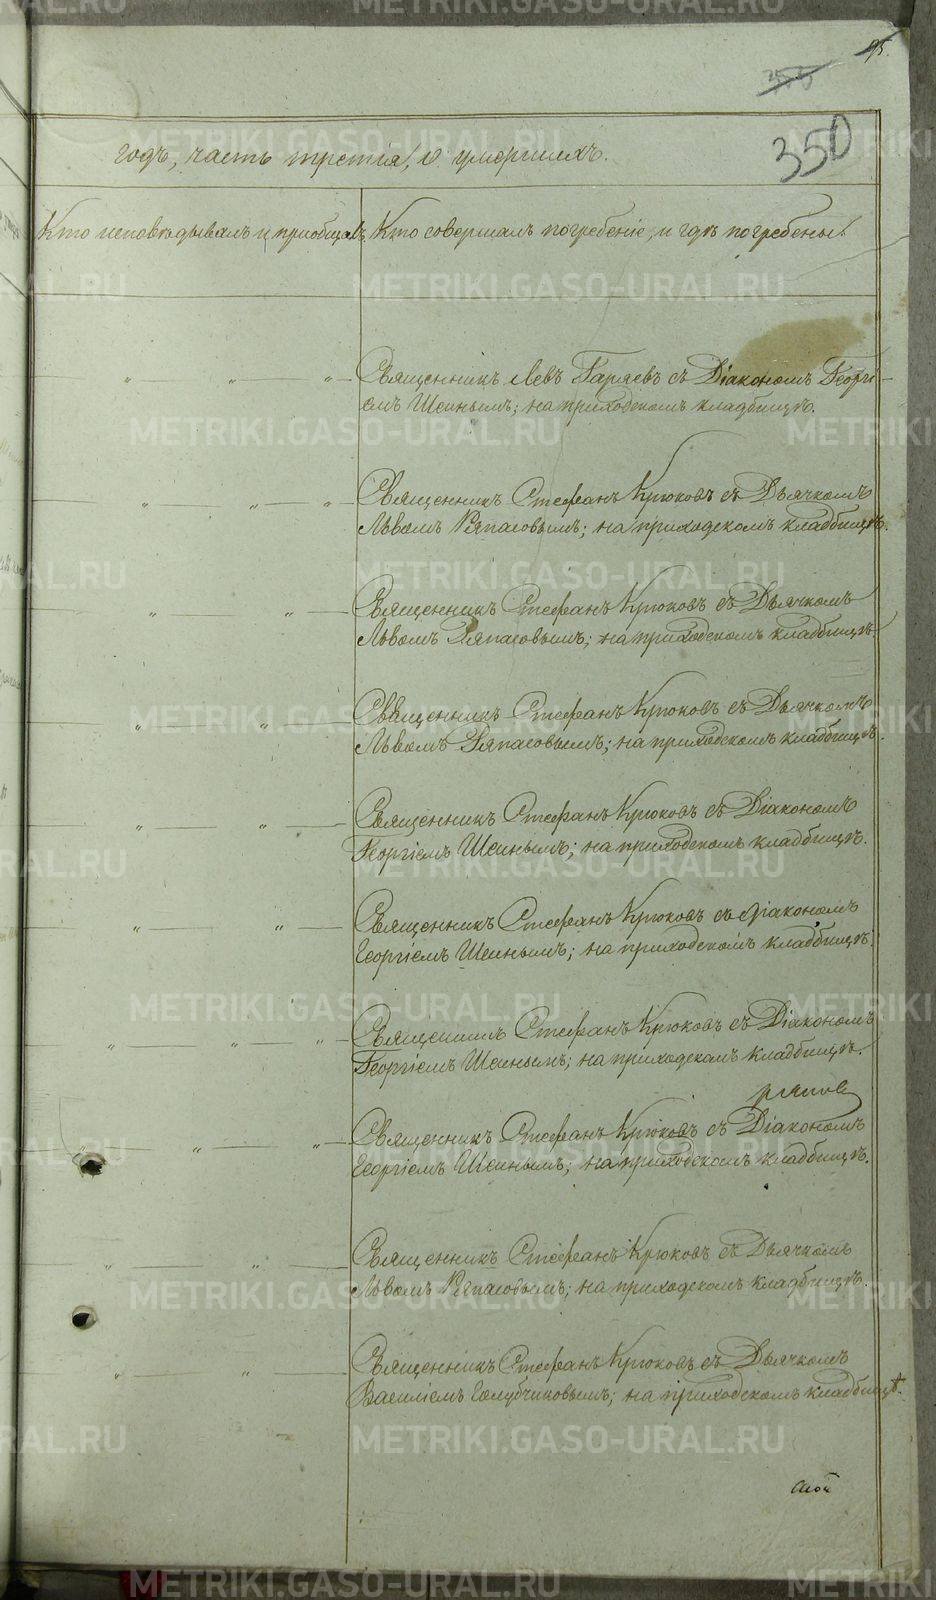 95.
350
годъ, часть третія, о умершихъ.
Кто исповѣдывалъ и приобщалъ
Кто совершалъ погребеніе, и гдѣ погребены.
Священникъ Левъ Гаряевъ съ Діакономъ Георгі-
емъ Шеинымъ; на приходскомъ кладбищѣ.
Священникъ Стефанъ Крюковъ съ Дьячкомъ
Львомъ Ряпасовымъ; на приходскомъ кладбищѣ.
Священникъ Стефанъ Крюковъ съ Дьячкомъ
Львомъ Ряпасовымъ; на приходскомъ кладбищѣ.
Священникъ Стефанъ Крюковъ съ Дьячкомъ
Львомъ Ряпасовымъ; на приходскомъ кладбищѣ.
Священникъ Стефанъ Крюковъ съ Діакономъ
Георгіемъ Шеинымъ; на приходскомъ кладбищѣ.
Священникъ Стефанъ Крюковъ съ Діакономъ
Георгіемъ Шеинымъ; на приходскомъ кладбищѣ.
Священникъ Стефанъ Крюковъ съ Діакономъ
Георгіемъ Шеинымъ; на приходскомъ кладбищѣ.
Священникъ Стефанъ Крюковъ съ Діакономъ
Георгіемъ Шеинымъ; на приходскомъ кладбищѣ.
Священникъ Стефанъ Крюковъ съ Дьячкомъ
Львомъ Ряпасовымъ; на приходскомъ кладбищѣ.
Священникъ Стефанъ Крюковъ съ Дьячкомъ
Василіемъ Голубчиковымъ; на приходскомъ кладбищѣ.
METRIKI.GASO-URAL.RU